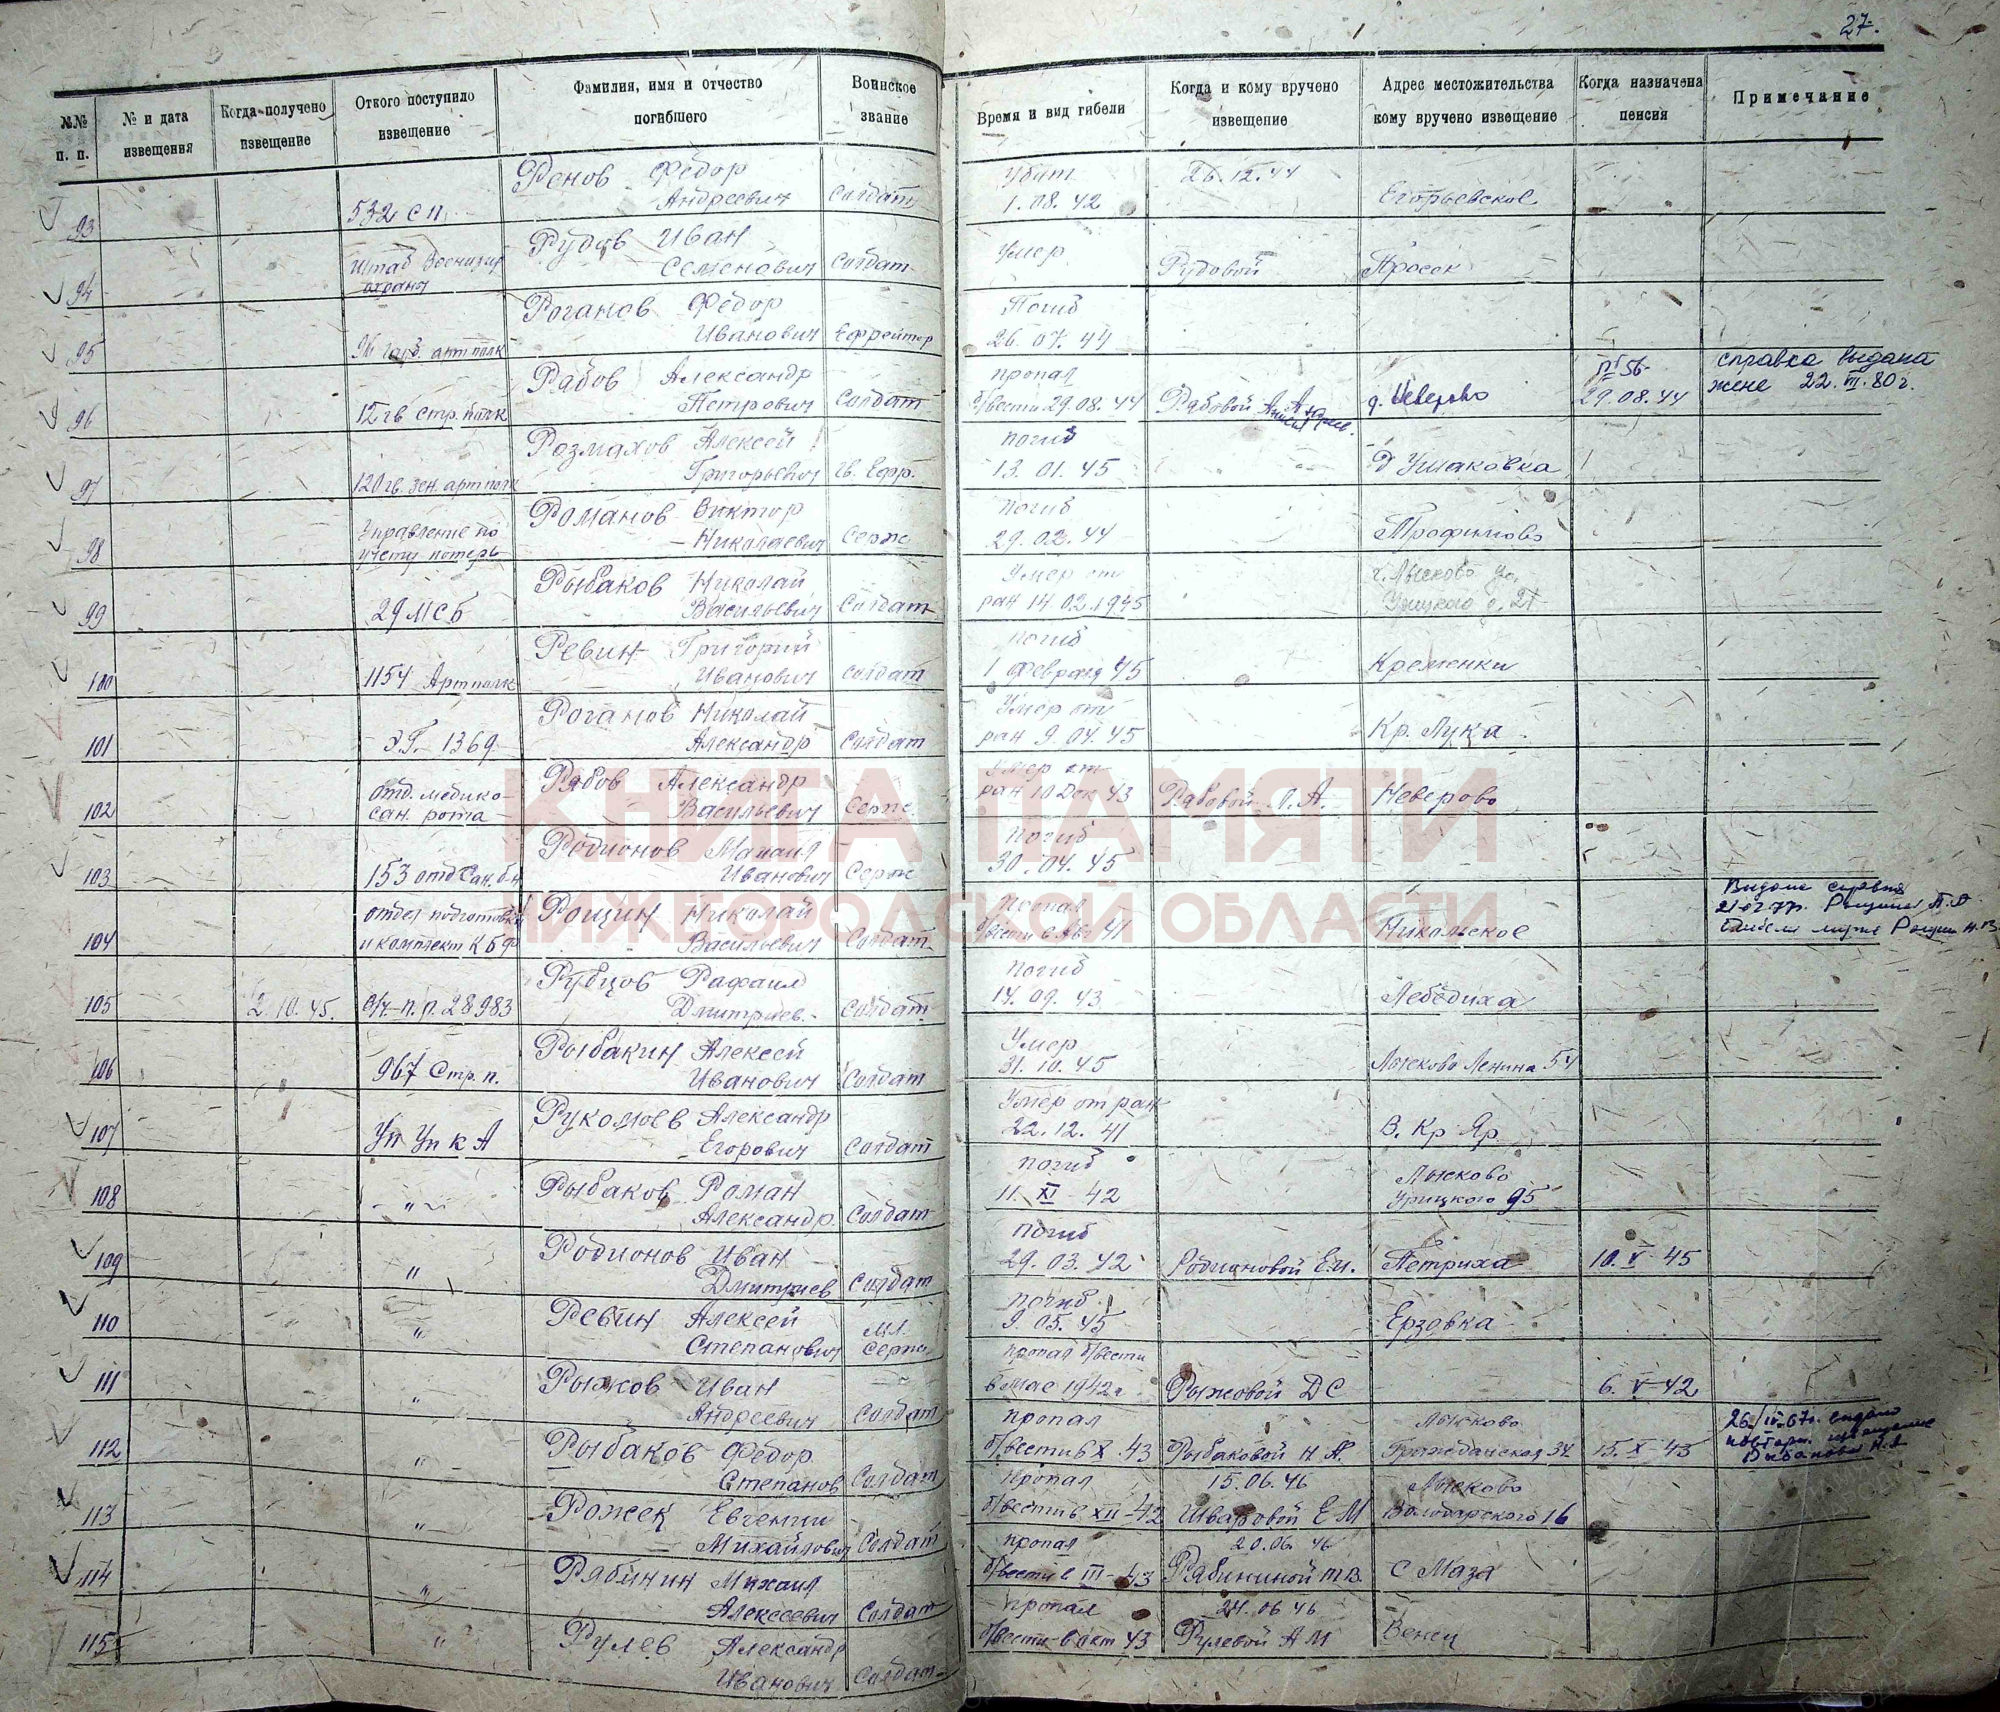 27.
№№ п. п. | № и дата извещения | Когда получено извещение | Откого поступило извещение | Фамилия, имя и отчество погибшего | Воинское звание | Время и вид гибели | Когда и кому вручено извещение | Адрес местожительства кому вручено извещение | Когда назначена пенсия | Примечание
93 532 сп Ренов Фёдор Андреевич Солдат Убит 1.08.42 26.12.44 Егорьевское
94 Штаб охраны Рудов Иван Семёнович Солдат Умер Рудовой Просек
95 96 гвард. артполк Роганов Фёдор Иванович Ефрейтор Погиб 26.07.44
96 12 гв стр. полк Рабов Александр Петрович Солдат пропал б/вести 29.08.44 Рабовой д. Неверово 29.08.44 справка выдана жене 22.III.80г.
97 120 гв. зен. артполк Розмахов Алексей Григорьевич гв. Ефр. погиб 13.01.45 д Ушаковка
98 Управление по учету потерь Романов Виктор Николаевич Серж Погиб 29.02.44 Трофимово
99 29 МСБ Рыбаков Николай Васильевич Солдат Умер от ран 14.02.1945 г. Лысково ул. Урицкого д. 21
100 1154 Артполк Ревин Григорий Иванович Солдат погиб 1 февраля 45 Кременки
101 ЭГ-1369 Роганов Николай Александр Солдат Умер от ран 9.04.45 Кр. Лука
102 отд. медико-сан. рота Рябов Александр Васильевич Серж. Умер от ран 10 Дек 43 Рабовой Л. А. Неверово
103 153 отд Сан. б-н Родионов Михаил Иванович Серж погиб 30.04.45
104 отдел подготовки и комплект К Б Ф Рощин Николай Васильевич Солдат Пропал б/вести в Авг 41 Никольское Выдана справка
105 2.10.45. в/ч-п.п.28983 Рубцов Рафаил Дмитриев. Солдат погиб 14.09.43 Лебёдиха
106 967 Стр. п. Рыбакин Алексей Иванович Солдат Умер 31.10.45 Лысково Ленина 54
107 Уп Уп К А Рукомоев Александр Егорович Солдат Умер от ран 22.12.41 В. Кр Яр
108 -"- Рыбаков Роман Александр. Солдат погиб 11.XI-42 Лысково Урицкого 95
109 " Родионов Иван Дмитриев Солдат погиб 29.03.42 Родионовой Е.И. Петриха 10.V-45
110 " Ревин Алексей Степанович мл. серж. погиб 9.05.45 Ерзовка
111 " Рыжов Иван Андреевич Солдат пропал б/вести в мае 1942г Рыжовой Д С 6.V-42
112 " Рыбаков Фёдор Степанов Солдат пропал б/вести в X.43 Рыбаковой Н А. Лысково Гражданская 34 15.X-43
113 " Рожек Евгений Михайлович Солдат пропал б/вести в XII-42 15.06.46 Шваровой Е М Лысково Володарского 16
114 " Рябинин Михаил Алексеевич Солдат пропал б/вести в III-43 20.06.46 Рябининой Т В. С Маза
115 " Рулев Александр Иванович Солдат пропал б/вести в окт 43 24.06 46 Рулевой А М Венец
КНИГА ПАМЯТИ
НИЖЕГОРОДСКОЙ ОБЛАСТИ